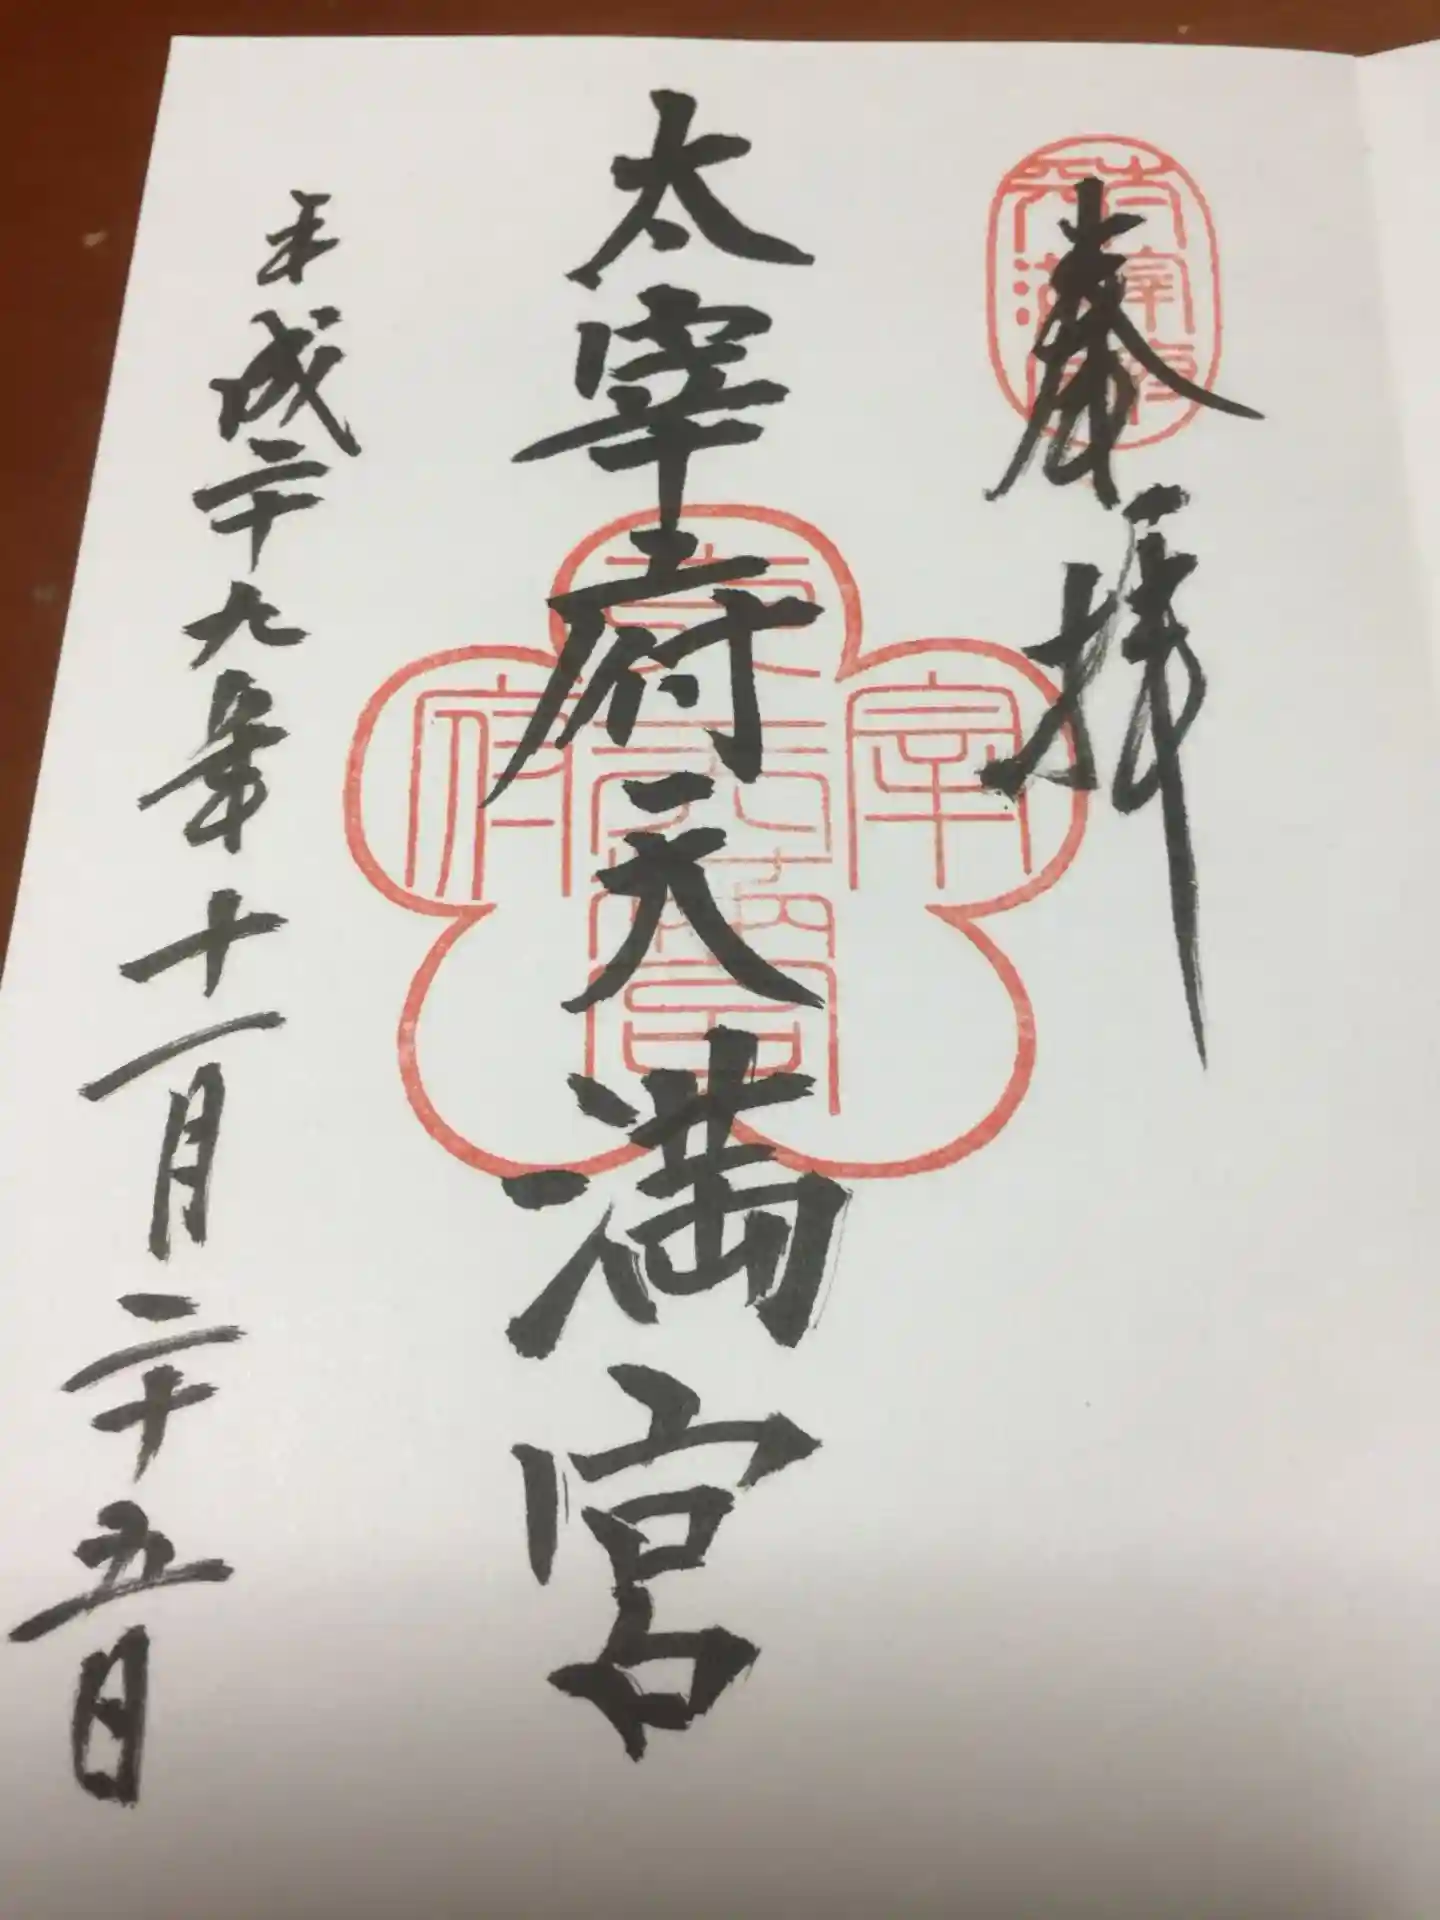 奉拝
太宰府天満宮
平成二十九年十一月二十五日
太宰府
天満宮